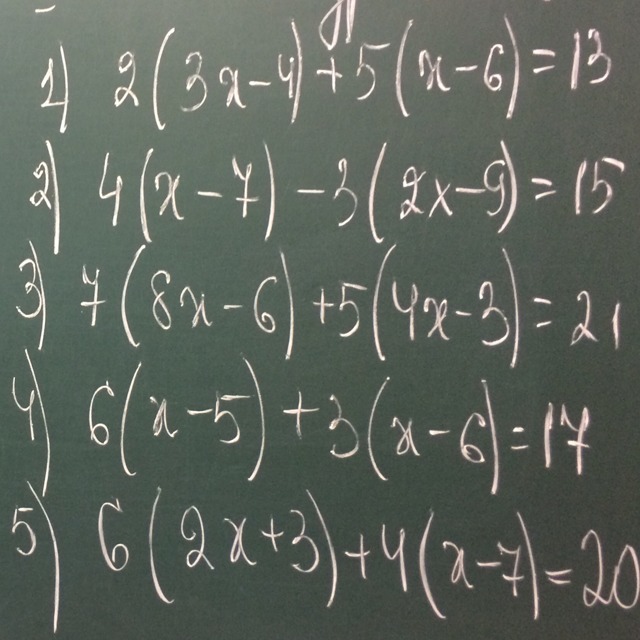 1) 2(3x-4)+5(x-6)=13
2) 4(x-7)-3(2x-9)=15
3) 7(8x-6)+5(4x-3)=21
4) 6(x-5)+3(x-6)=17
5) 6(2x+3)+4(x-7)=20